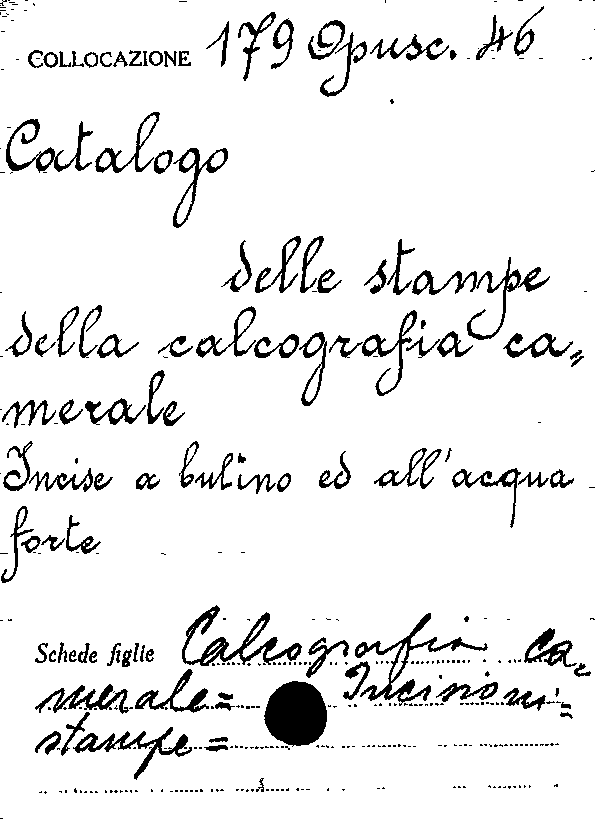 COLLOCAZIONE 179 Opusc. 46
Catalogo
delle stampe
della calcografia ca=
merale
Incise a bulino ed all'acqua
forte
Schede figlie Calcografia ca=
merale= Incisioni=
stampe=